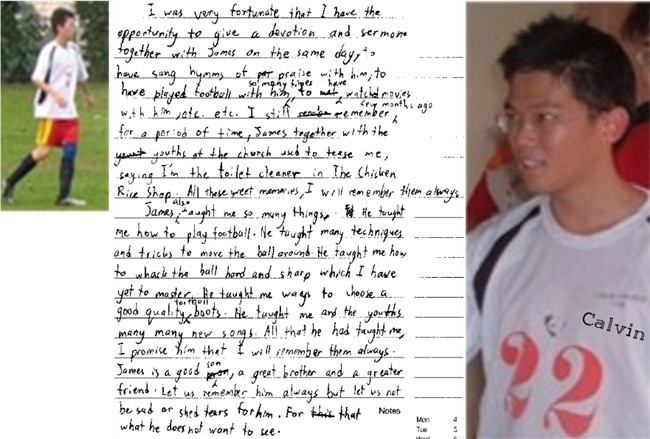 I was very fortunate that I have the
opportunity to give a devotion and sermons
together with James on the same day, to
have sang hymns of praise with him, to
have played football with him so many times, to have watched movies
with him, etc. etc. I still remember few months ago
for a period of time, James together with the
youths of the church used to tease me,
saying I'm the toilet cleaner in The Chicken
Rice Shop. All these sweet memories, I will remember them always
James also taught me so many things. He taught
me how to play football. He taught many techniques
and tricks to move the ball around. He taught me how
to whack the ball hard and sharp which I have
yet to master. He taught me ways to choose a
good quality football boots. He taught me and the youths
many many new songs. All that he had taught me,
I promise him that I will remember them always.
James is a good son, a great brother and a greater
friend. Let us remember him always but let us not
be sad or shed tears for him. For that
what he does not want to see.
Notes
Mon 4
Tue 5
Wed 6
Calvin
22